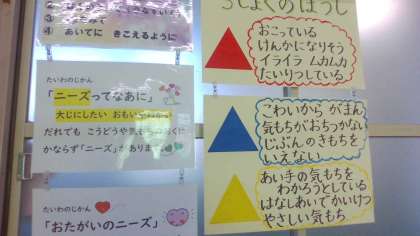 ④ あいてに きこえるように
たいわのじかん
「ニーズってなあに」
大じにしたい おもい
だれでも こうどうや気もちの
かならず「ニーズ」があります
たいわのじかん
「おたがいのニーズ」
三しょくのぼうし
おこっている
けんかになりそう
イライラ ムカムカ
たいりつしている
こわいから がまん
気もちがおちつかない
じぶんのきもちを
いえない
あい手の気もちを
わかろうとしている
はなしあいでかいけつ
やさしい気もち